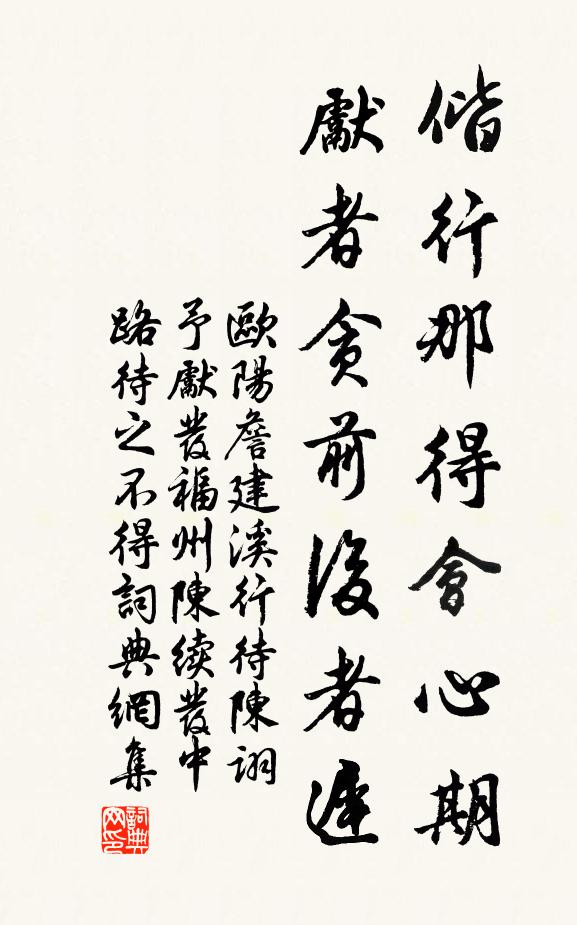 偕行那得會心期
獻者貪前後者遲
歐陽詹建溪行待陳詡
予獻發福州陳續發中
路待之不得詞典網集
詞典
网印